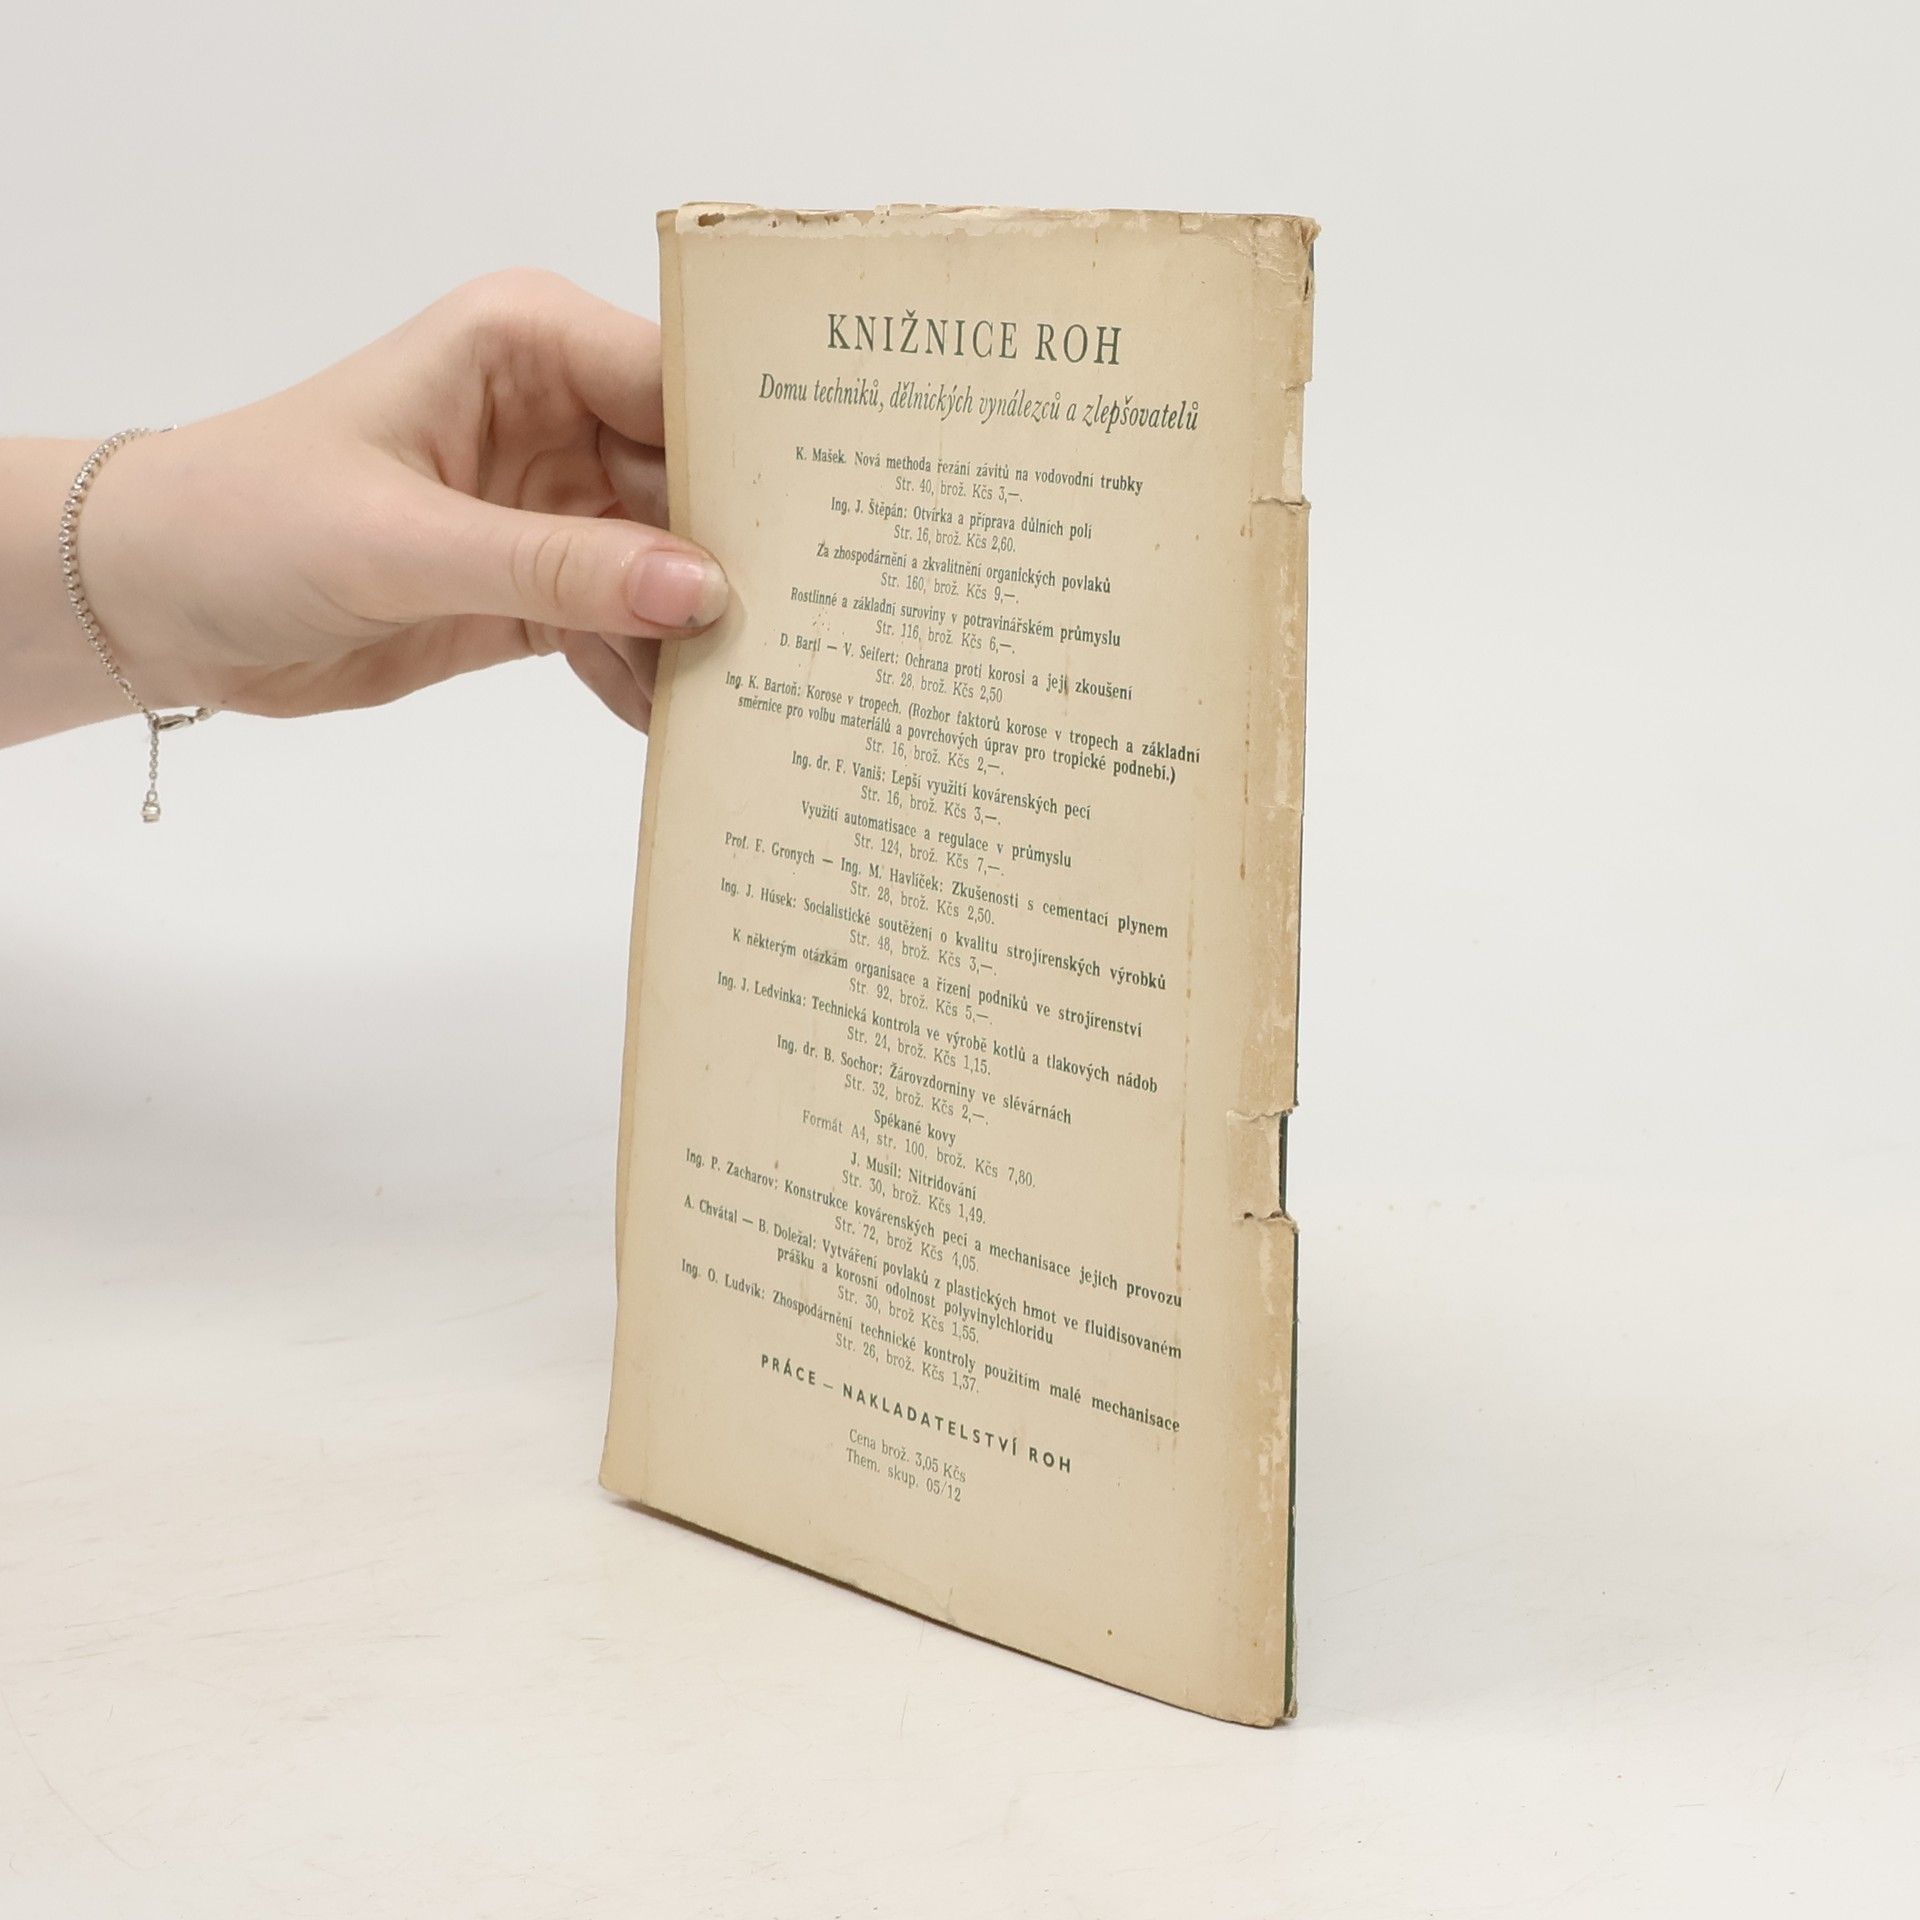 KNIŽNICE ROH
Domu techniků, dělnických vynálezců a zlepšovatelů
K. Mašek. Nová methoda řezání závitů na vodovodní trubky
Str. 40, brož. Kčs 3,—.
Ing. J. Štěpán: Otvírka a příprava důlních polí
Str. 16, brož. Kčs 2,60.
Za zhospodárnění a zkvalitnění organických povlaků
Str. 160, brož. Kčs 9,—.
Rostlinné a základní suroviny v potravinářském průmyslu
Str. 116, brož. Kčs 6,—.
D. Bartl — V. Seifert: Ochrana proti korosi a její zkoušení
Str. 28, brož. Kčs 2,50
Ing. K. Bartoň: Korose v tropech. (Rozbor faktorů korose v tropech a základní
směrnice pro volbu materiálů a povrchových úprav pro tropické podnebí.)
Str. 16, brož. Kčs 2,—.
Ing. dr. F. Vaniš: Lepší využití kovárenských pecí
Str. 16, brož. Kčs 3,—.
Využití automatisace a regulace v průmyslu
Str. 124, brož. Kčs 7,—.
Prof. F. Gronych — Ing. M. Havlíček: Zkušenosti s cementací plynem
Str. 28, brož. Kčs 2,50.
Ing. J. Húsek: Socialistické soutěžení o kvalitu strojírenských výrobků
Str. 48, brož. Kčs 3,—.
K některým otázkám organisace a řízení podniků ve strojírenství
Str. 92, brož. Kčs 5,—.
Ing. J. Ledvinka: Technická kontrola ve výrobě kotlů a tlakových nádob
Str. 24, brož. Kčs 1,15.
Ing. dr. B. Sochor: Žárovzdorniny ve slévárnách
Str. 32, brož. Kčs 2,—.
Spékané kovy
Formát A4, str. 100, brož. Kčs 7,80.
J. Musil: Nitridování
Str. 30, brož. Kčs 1,49.
Ing. P. Zacharov: Konstrukce kovárenských pecí a mechanisace jejich provozu
Str. 72, brož Kčs 4,05.
A. Chvátal — B. Doležal: Vytváření povlaků z plastických hmot ve fluidisovaném
prášku a korosní odolnost polyvinylchloridu
Str. 30, brož Kčs 1,55.
Ing. O. Ludvík: Zhospodárnění technické kontroly použitím malé mechanisace
Str. 26, brož. Kčs 1,37.
PRÁCE — NAKLADATELSTVÍ ROH
Cena brož. 3,05 Kčs
Them. skup. 05/12